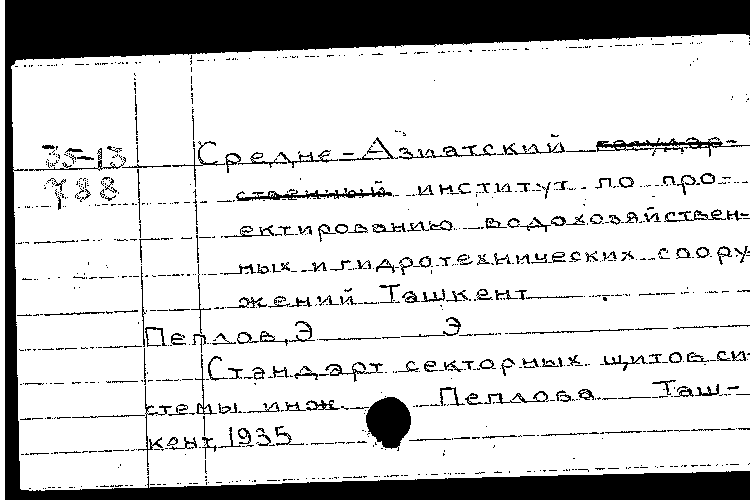 35-13
788
Средне-Азиатский государ-
ственный институт по про-
ектированию водохозяйствен-
ных и гидротехнических соору-
жений Ташкент
Пеплов, Э Э
Стандарт секторных щитов си-
стемы инж. Пеплова Таш-
кент, 1935